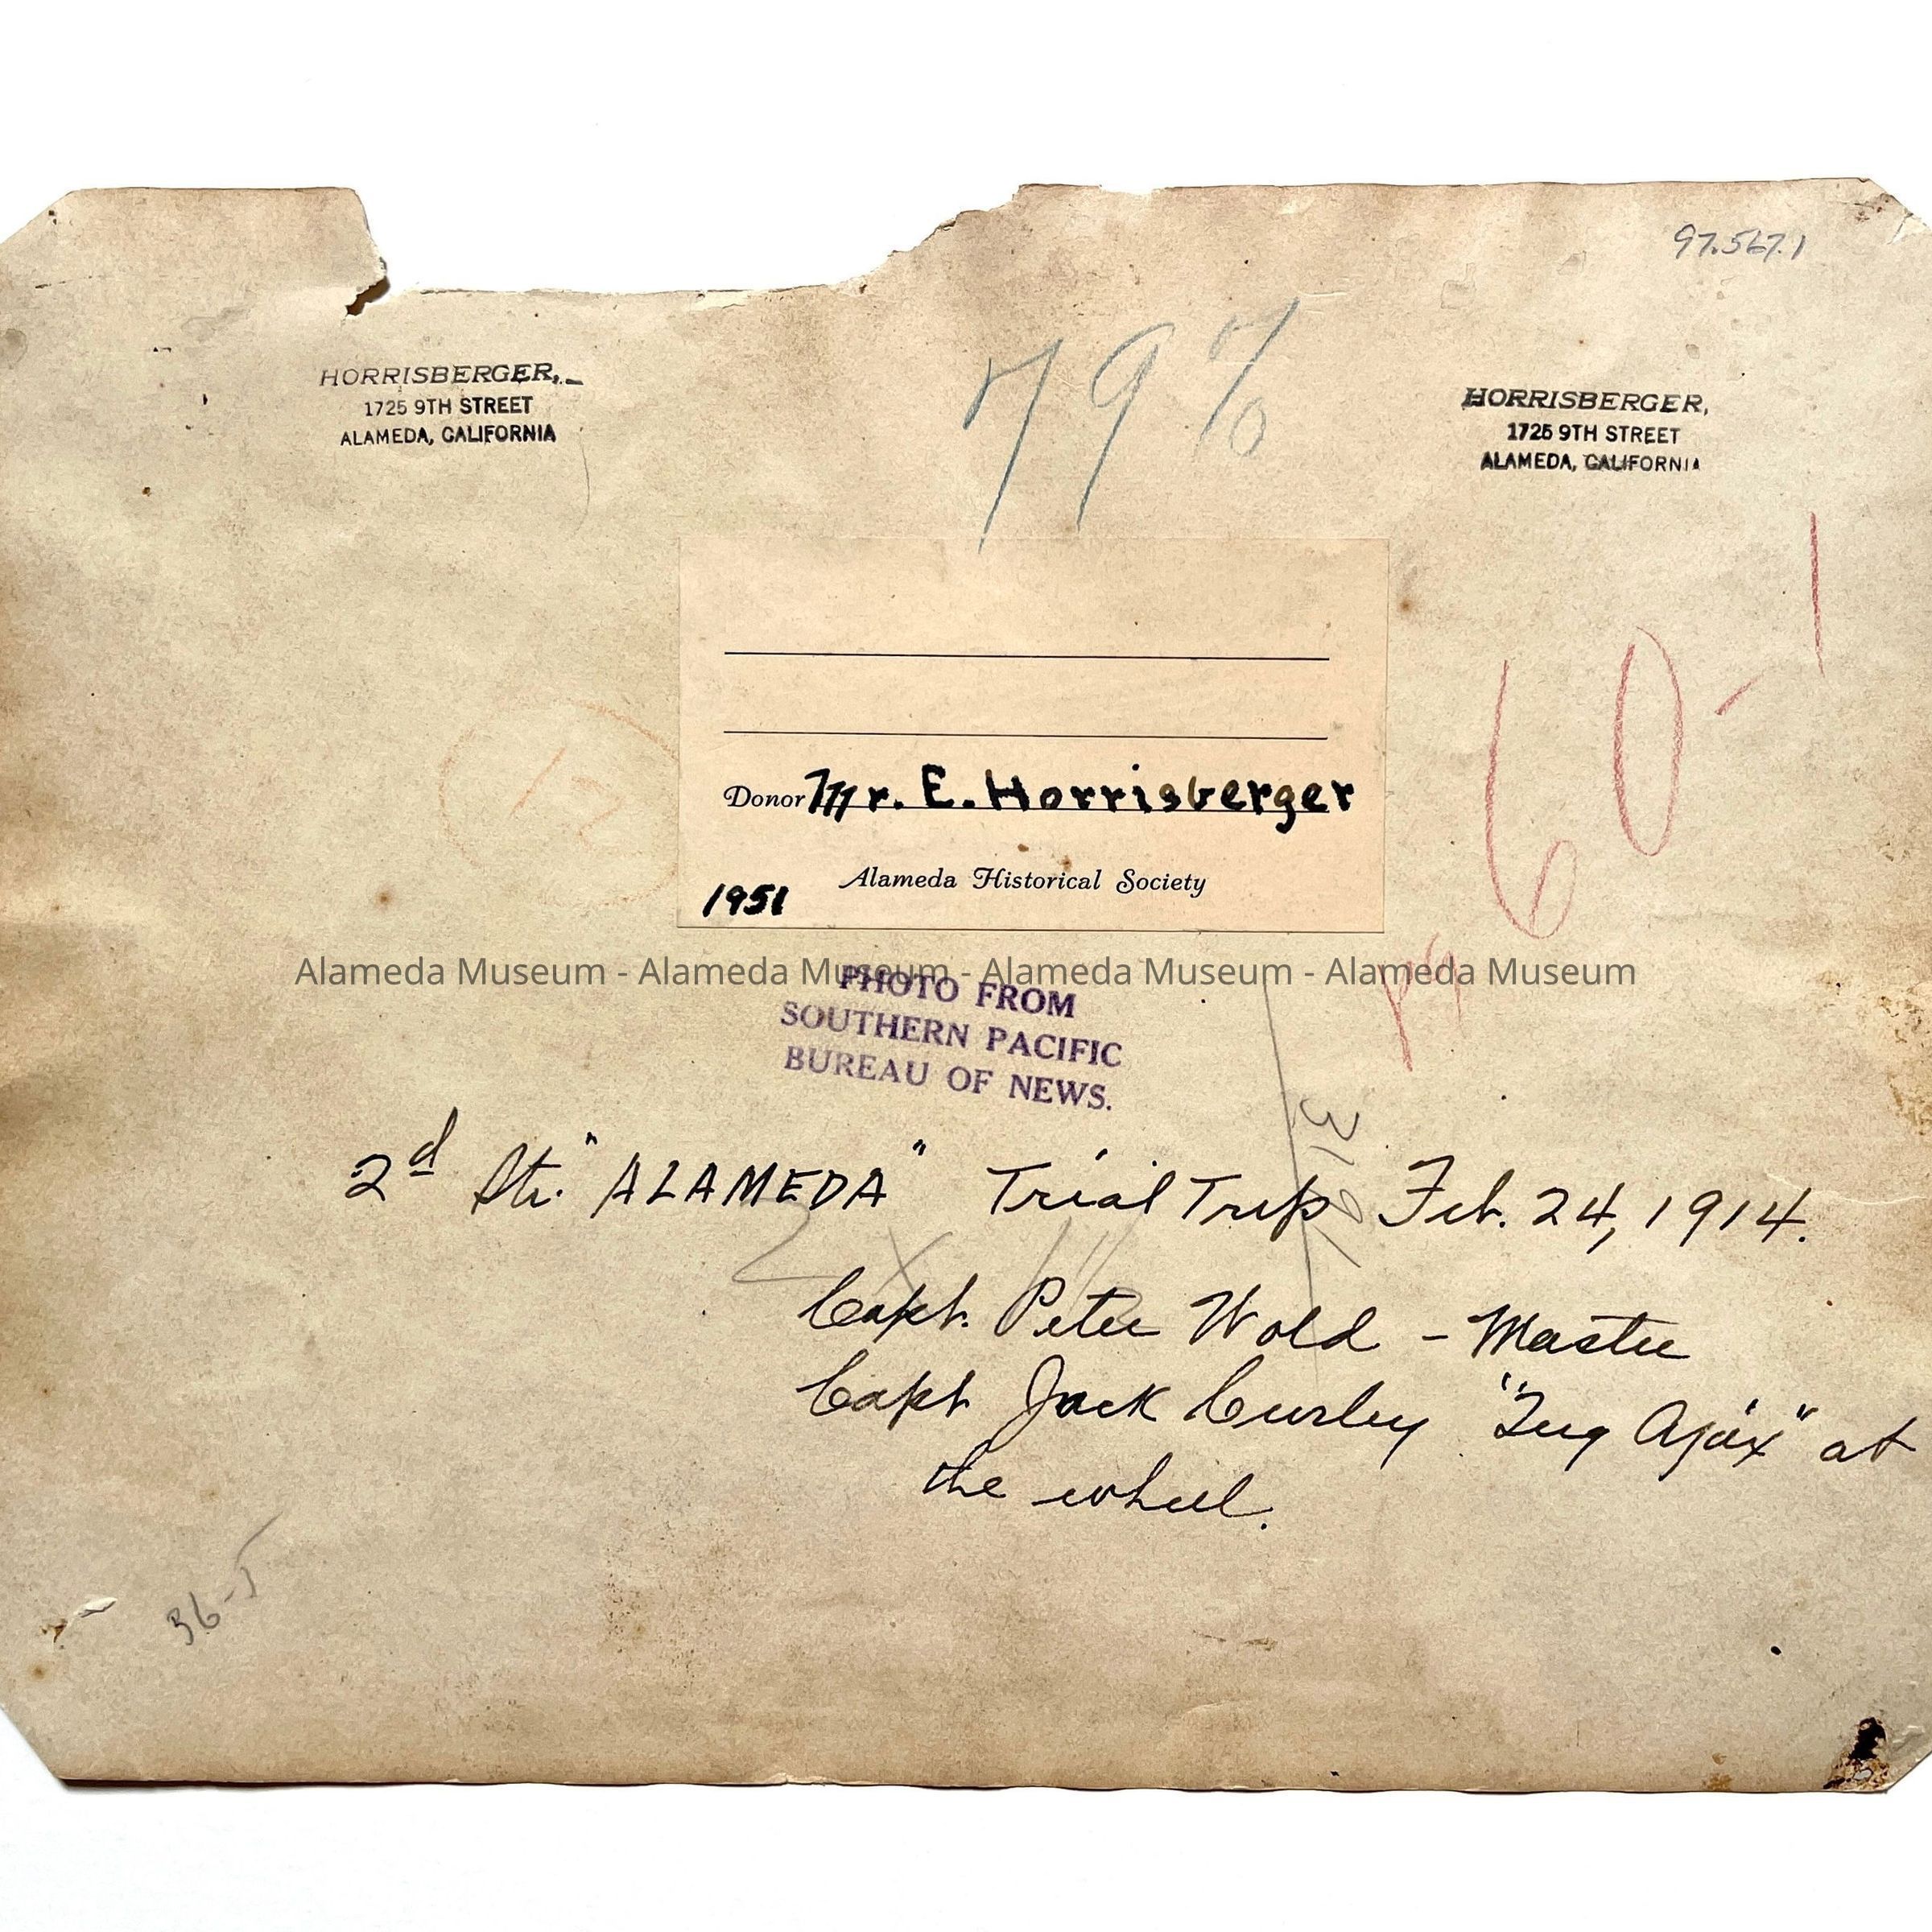 97.567.1
HORRISBERGER,
1725 9TH STREET
ALAMEDA, CALIFORNIA
79%
HORRISBERGER,
1725 9TH STREET
ALAMEDA, CALIFORNIA
60-1
pg
Donor Mr. E. Horrisberger
Alameda Historical Society
1951
Alameda Museum - Alameda Museum - Alameda Museum - Alameda Museum
PHOTO FROM
SOUTHERN PACIFIC
BUREAU OF NEWS.
2d Str. "ALAMEDA" Trial Trip Feb. 24, 1914.
Capt. Peter Wold - Master
Capt Jack Curley "Tug Ajax" at
the wheel.
36-5